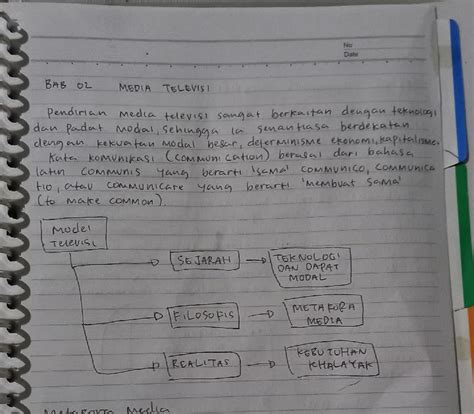 No
Date
BAB 02 MEDIA TELEVISI
Pendirian media televisi sangat berkaitan dengan teknologi
dan Padat modal, sehingga ia senantiasa berdekatan
dengan kekuatan modal besar, determinisme ekonomi, kapitalisme.
Kata komunikasi (communication) berasal dari bahasa
latin communis yang berarti 'sama' communico, communica
tio, atau communicare yang berarti 'membuat sama'
(to make common).
Model
TELEVISI
SEJARAH
TEKNOLOGI
DAN DAPAT
MODAL
FILOSOFIS
METAFORA
MEDIA
REALITAS
KEBUTUHAN
KHALAYAK
Media